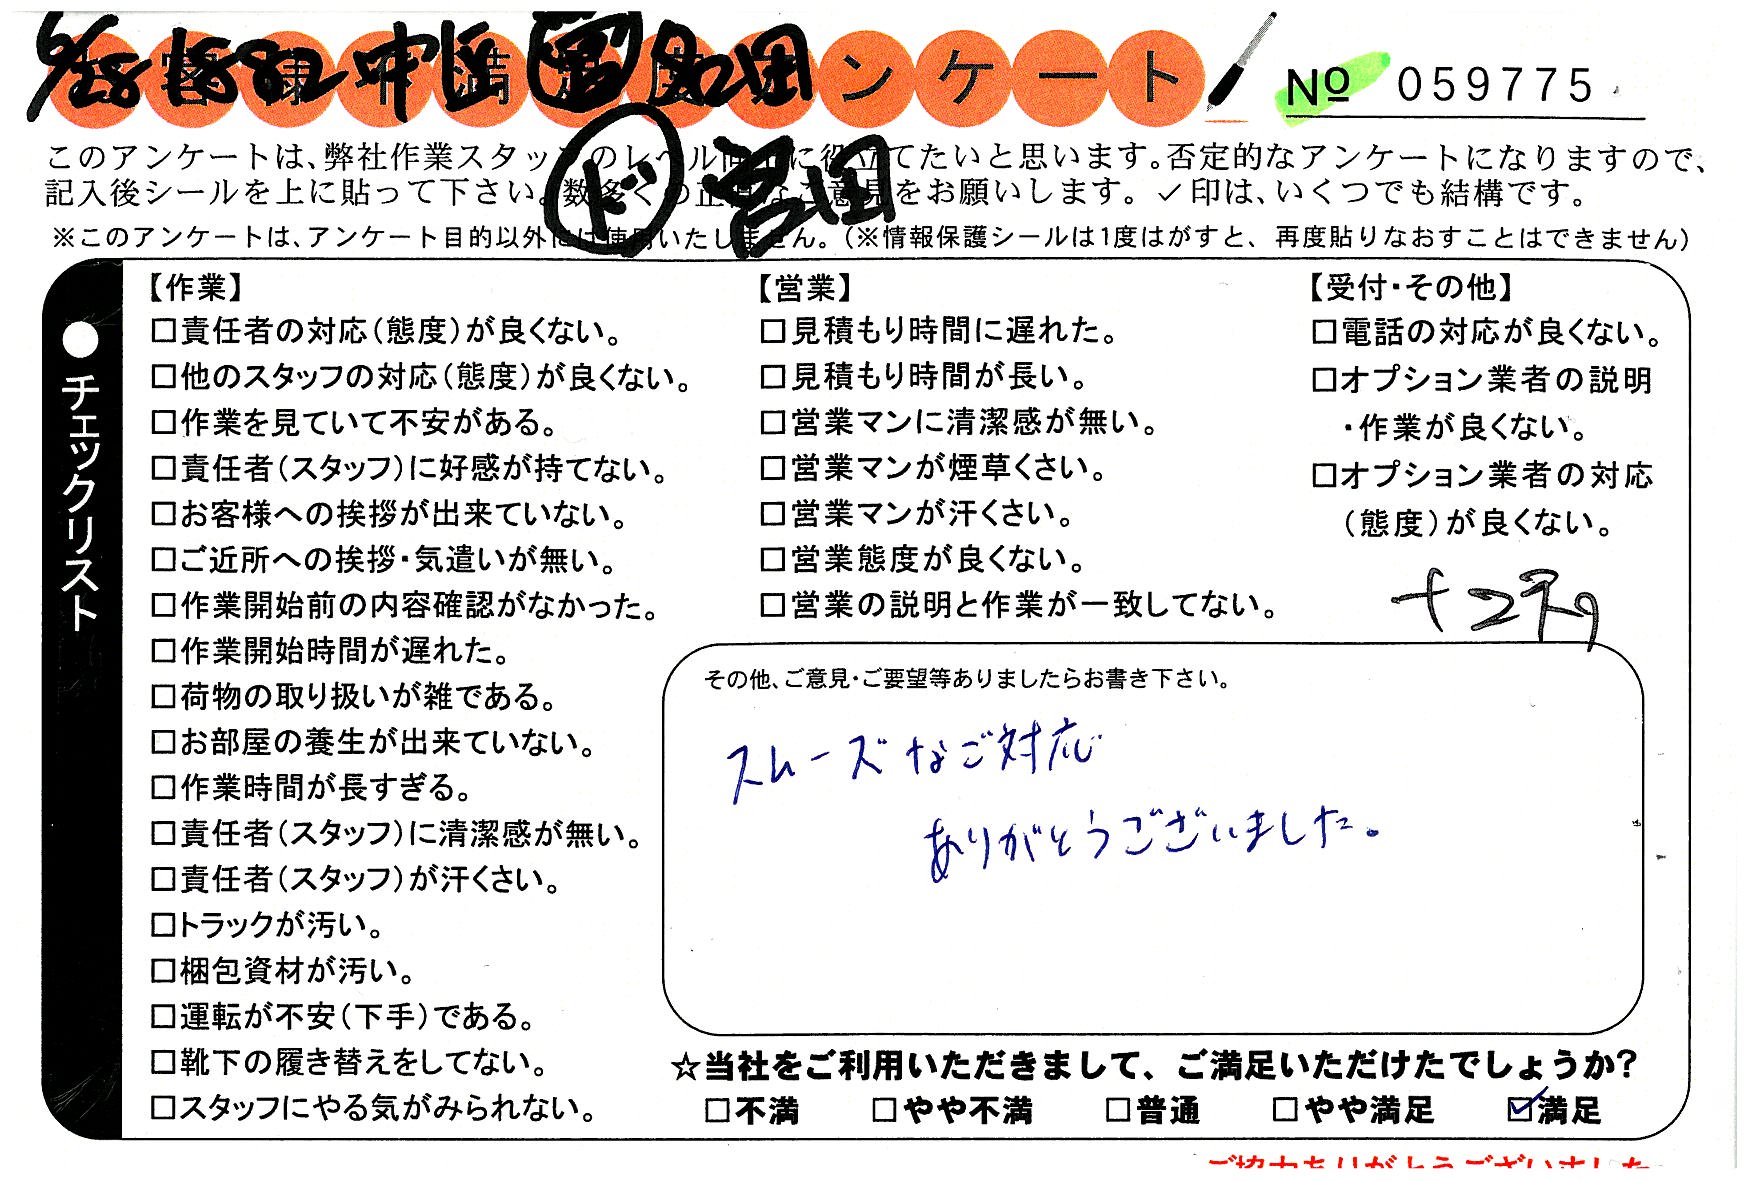 6/28 1882 中岳 営 和田
アンケート
№ 059775
ド 宮田
このアンケートは、弊社作業スタッフのレベル向上に役立てたいと思います。否定的なアンケートになりますので、
記入後シールを上に貼って下さい。数多くの正直なご意見をお願いします。✓印は、いくつでも結構です。
※このアンケートは、アンケート目的以外には使用いたしません。(※情報保護シールは1度はがすと、再度貼りなおすことはできません)
●チェックリスト
【作業】
□責任者の対応(態度)が良くない。
□他のスタッフの対応(態度)が良くない。
□作業を見ていて不安がある。
□責任者(スタッフ)に好感が持てない。
□お客様への挨拶が出来ていない。
□ご近所への挨拶・気遣いが無い。
□作業開始前の内容確認がなかった。
□作業開始時間が遅れた。
□荷物の取り扱いが雑である。
□お部屋の養生が出来ていない。
□作業時間が長すぎる。
□責任者(スタッフ)に清潔感が無い。
□責任者(スタッフ)が汗くさい。
□トラックが汚い。
□梱包資材が汚い。
□運転が不安(下手)である。
□靴下の履き替えをしてない。
□スタッフにやる気がみられない。
【営業】
□見積もり時間に遅れた。
□見積もり時間が長い。
□営業マンに清潔感が無い。
□営業マンが煙草くさい。
□営業マンが汗くさい。
□営業態度が良くない。
□営業の説明と作業が一致してない。
【受付・その他】
□電話の対応が良くない。
□オプション業者の説明
・作業が良くない。
□オプション業者の対応
(態度)が良くない。
その他、ご意見・ご要望等ありましたらお書き下さい。
スムーズなご対応
ありがとうございました。
☆当社をご利用いただきまして、ご満足いただけたでしょうか?
□不満 □やや不満 □普通 □やや満足 ☑満足
ご協力ありがとうございました